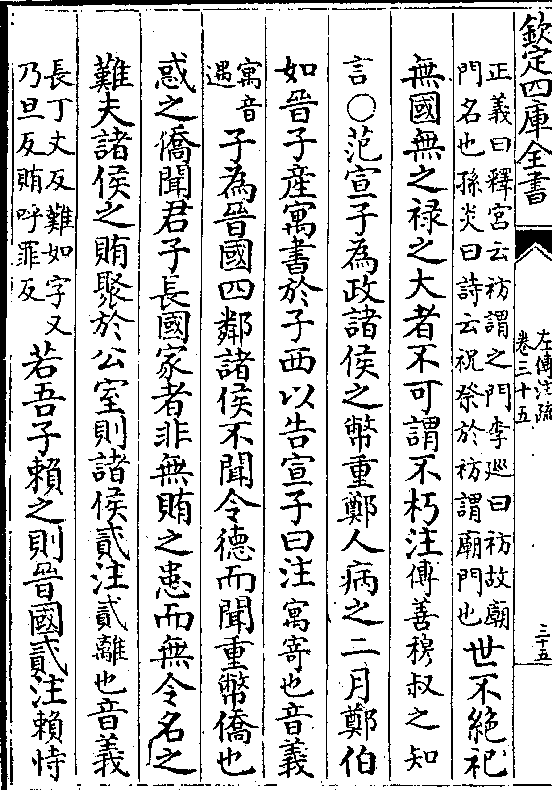 欽定四庫全書
左傳注疏
卷三十五
二十五
正義曰釋宮云祊謂之門李廵曰祊故廟
門名也孫炎曰詩云祝祭於祊謂廟門也
世不絶祀
無國無之禄之大者不可謂不朽注傳善穆叔之知
言○范宣子為政諸侯之幣重鄭人病之二月鄭伯
如晉子產寓書於子西以告宣子曰注寓寄也音義
寓音
遇
子為晉國四鄰諸侯不聞令德而聞重幣僑也
惑之僑聞君子長國家者非無賄之患而無令名之
難夫諸侯之賄聚於公室則諸侯貳注貳離也音義
長丁丈反難如字又
乃旦反賄呼罪反
若吾子賴之則晉國貳注賴恃